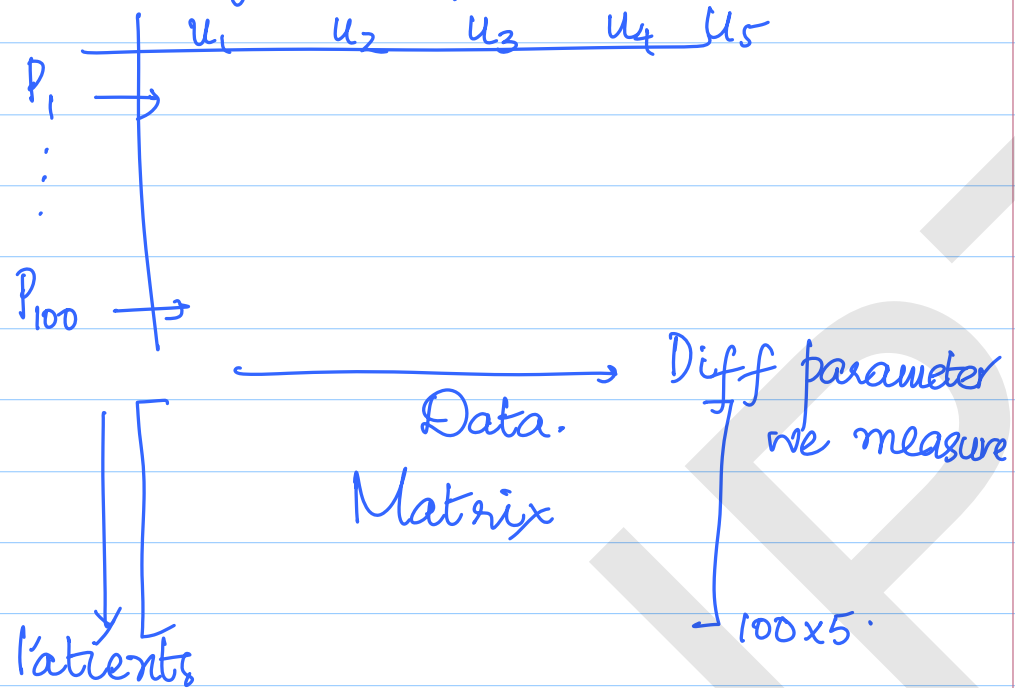 u₁ u₂ u₃ u₄ u₅
P₁
⋮
P₁₀₀
Diff parameter
we measure
Data.
Matrix
100x5.
Patients